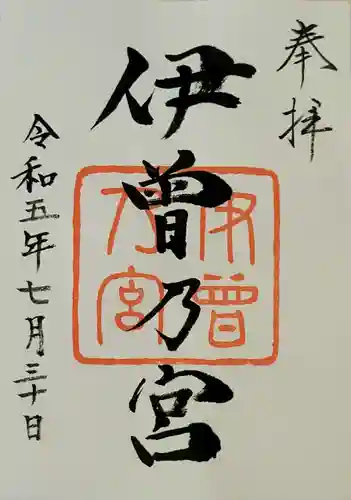 奉拝
伊曽乃宮
伊曽乃宮
令和五年七月三十日